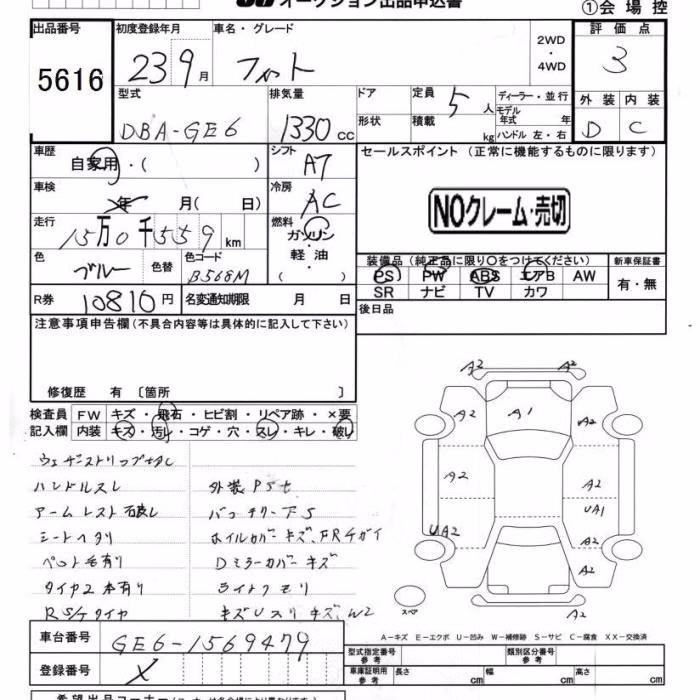 オークション出品申込書
①会場控
出品番号 5616
初度登録年月 23 9月
車名・グレード フィット
2WD・4WD
評価点 3
型式 DBA-GE6
排気量 1330cc
ドア
定員 5人
ディーラー・並行
形状
積載 kg
モデル年式 年
ハンドル 左・右
外装 D
内装 C
車歴 自家用・( )
シフト A7
セールスポイント (正常に機能するものに限ります)
車検 年 月( 日)
冷房 AC
NOクレーム・売切
走行 15万0千559km
燃料 ガソリン・軽油・
色 ブルー
色替
色コード B568M
装備品 (純正品に限り○をつけてください)
新車保証書
PS PW ABS エアB AW
有・無
SR ナビ TV カワ
R券 10810円
名変通知期限 月 日
後日品
注意事項申告欄(不具合内容等は具体的に記入して下さい)
修復歴 有〔箇所 〕
検査員記入欄
FW キズ・飛石・ヒビ割・リペア跡・×要
内装 キズ・汚レ・コゲ・穴・スレ・キレ・破レ
A2 A2
A2 A1 A2
A2 A2
UA1
UA2 A2
A2
A2
スペア
ハンドルスレ
アームレスト
シートヘタリ
ペット毛有り
タイヤ2本有り
外装
バッテリー
ホイルカバーキズ、FRチガイ
Dミラーカバーキズ
ライトクモリ
キズUスリキズ、W2
A−キズ E−エクボ U−凹み W−補修跡 S−サビ C−腐食 XX−交換済
車台番号 GE6-1569479
登録番号
型式指定番号 参考
類別区分番号 参考
車庫証明用 参考 長さ cm 幅 cm 高さ cm